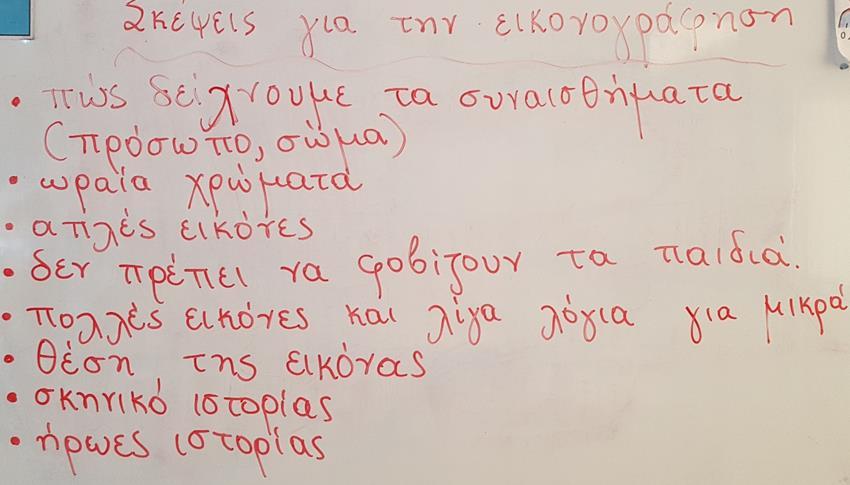 Σκέψεις για την εικονογράφηση
• πώς δείχνουμε τα συναισθήματα
(πρόσωπο, σώμα)
• ωραία χρώματα
• απλές εικόνες
• δεν πρέπει να φοβίζουν τα παιδιά.
• πολλές εικόνες και λίγα λόγια για μικρά
• θέση της εικόνας
• σκηνικό ιστορίας
• ήρωες ιστορίας